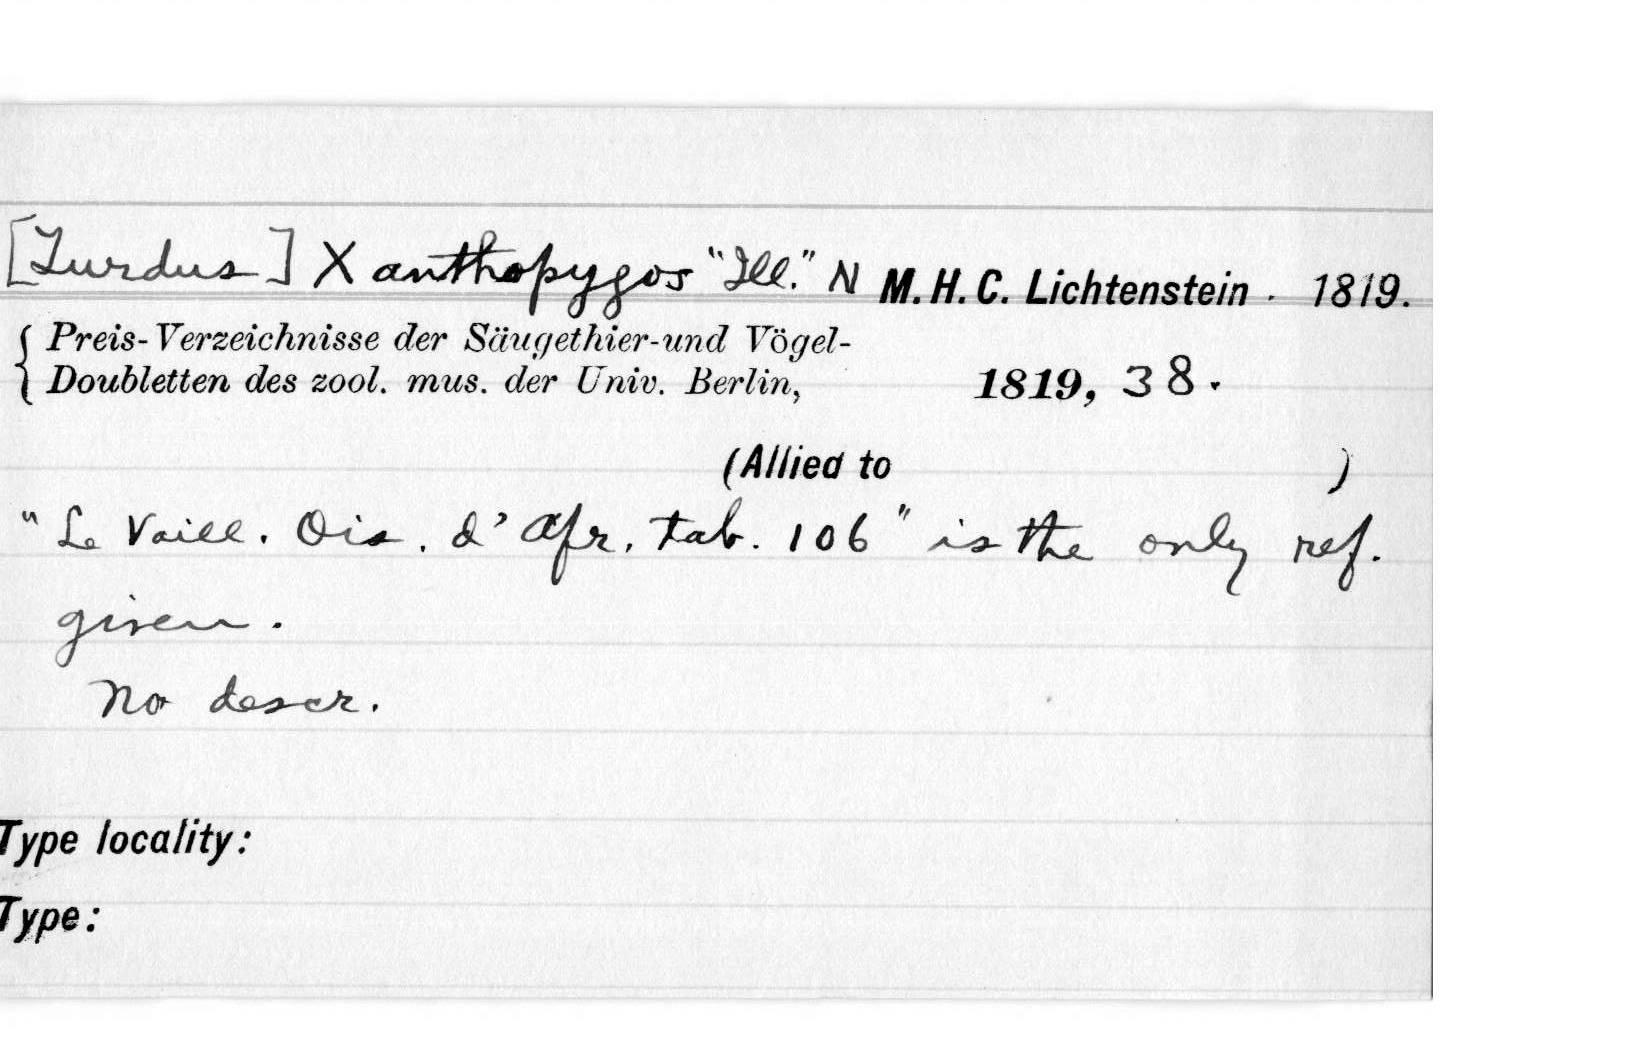 [Turdus] Xanthopygos "Ill." N M. H. C. Lichtenstein . 1819.
{ Preis-Verzeichnisse der Säugethier-und Vögel-
Doubletten des zool. mus. der Univ. Berlin, 1819, 38.
(Allied to )
"Le Vaill. Ois. d'Afr. tab. 106" is the only ref.
given.
No descr.
Type locality:
Type: